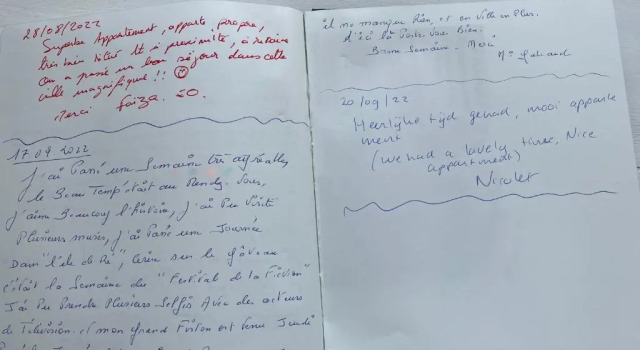 28/08/2022
Superbe Appartement, opporte, propre,
très bien situé et à proximité, à refaire
On a passé un bon séjour dans cette
ville magnifique !!
Merci Faiza. EO.
17.09.2022
J'ai Passé une Semaine très agréable,
le Beau Temp était au Rendez-Vous,
J'aime Beaucoup l'histoire, J'ai Pu Visité
Plusieurs musés, J'ai Passé une Journée
Dans l'ile de Ré", Cerise sur le gâteau
c'était la Semaine du "Festival de la Fiction"
J'ai Pu Prendre Plusieurs Selfis Avec des acteurs
de Télévision. et mon grand est venu Jeudi
il me manque Rien, et en Ville en Plus.
Bonne Semaine. Merci
20/09/22
Heerlijke tijd gehad, mooi apparte
ment
(we had a lovely time, Nice
appartment)
Nicolet